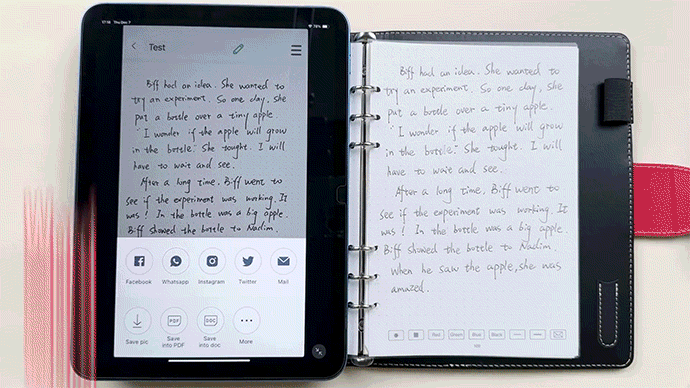 17:18 Thu Dec 7
76%
Test
Biff had an idea. She wanted to
try an experiment. So one day, she
put a bottle over a tiny apple.
"I wonder if the apple will grow
in the bottle." She tought. I will
have to wait and see.
After a long time, Biff went to
see if the experiment was working. It
was! In the bottle was a big apple.
Biff showed the bottle to Nadim.
Facebook
Whatsapp
Instagram
Twitter
Mail
PDF
DOC
Save pic
Save into PDF
Save into doc
More
Biff had an idea. She wanted to
try an experiment. So one day, she
put a bottle over a tiny apple.
"I wonder if the apple will grow
in the bottle." She tought. I will
have to wait and see.
After a long time, Biff went to
see if the experiment was working. It
was! In the bottle was a big apple.
Biff showed the bottle to Nadim.
When he saw the apple, she was
amazed.
Red
Green
Blue
Black